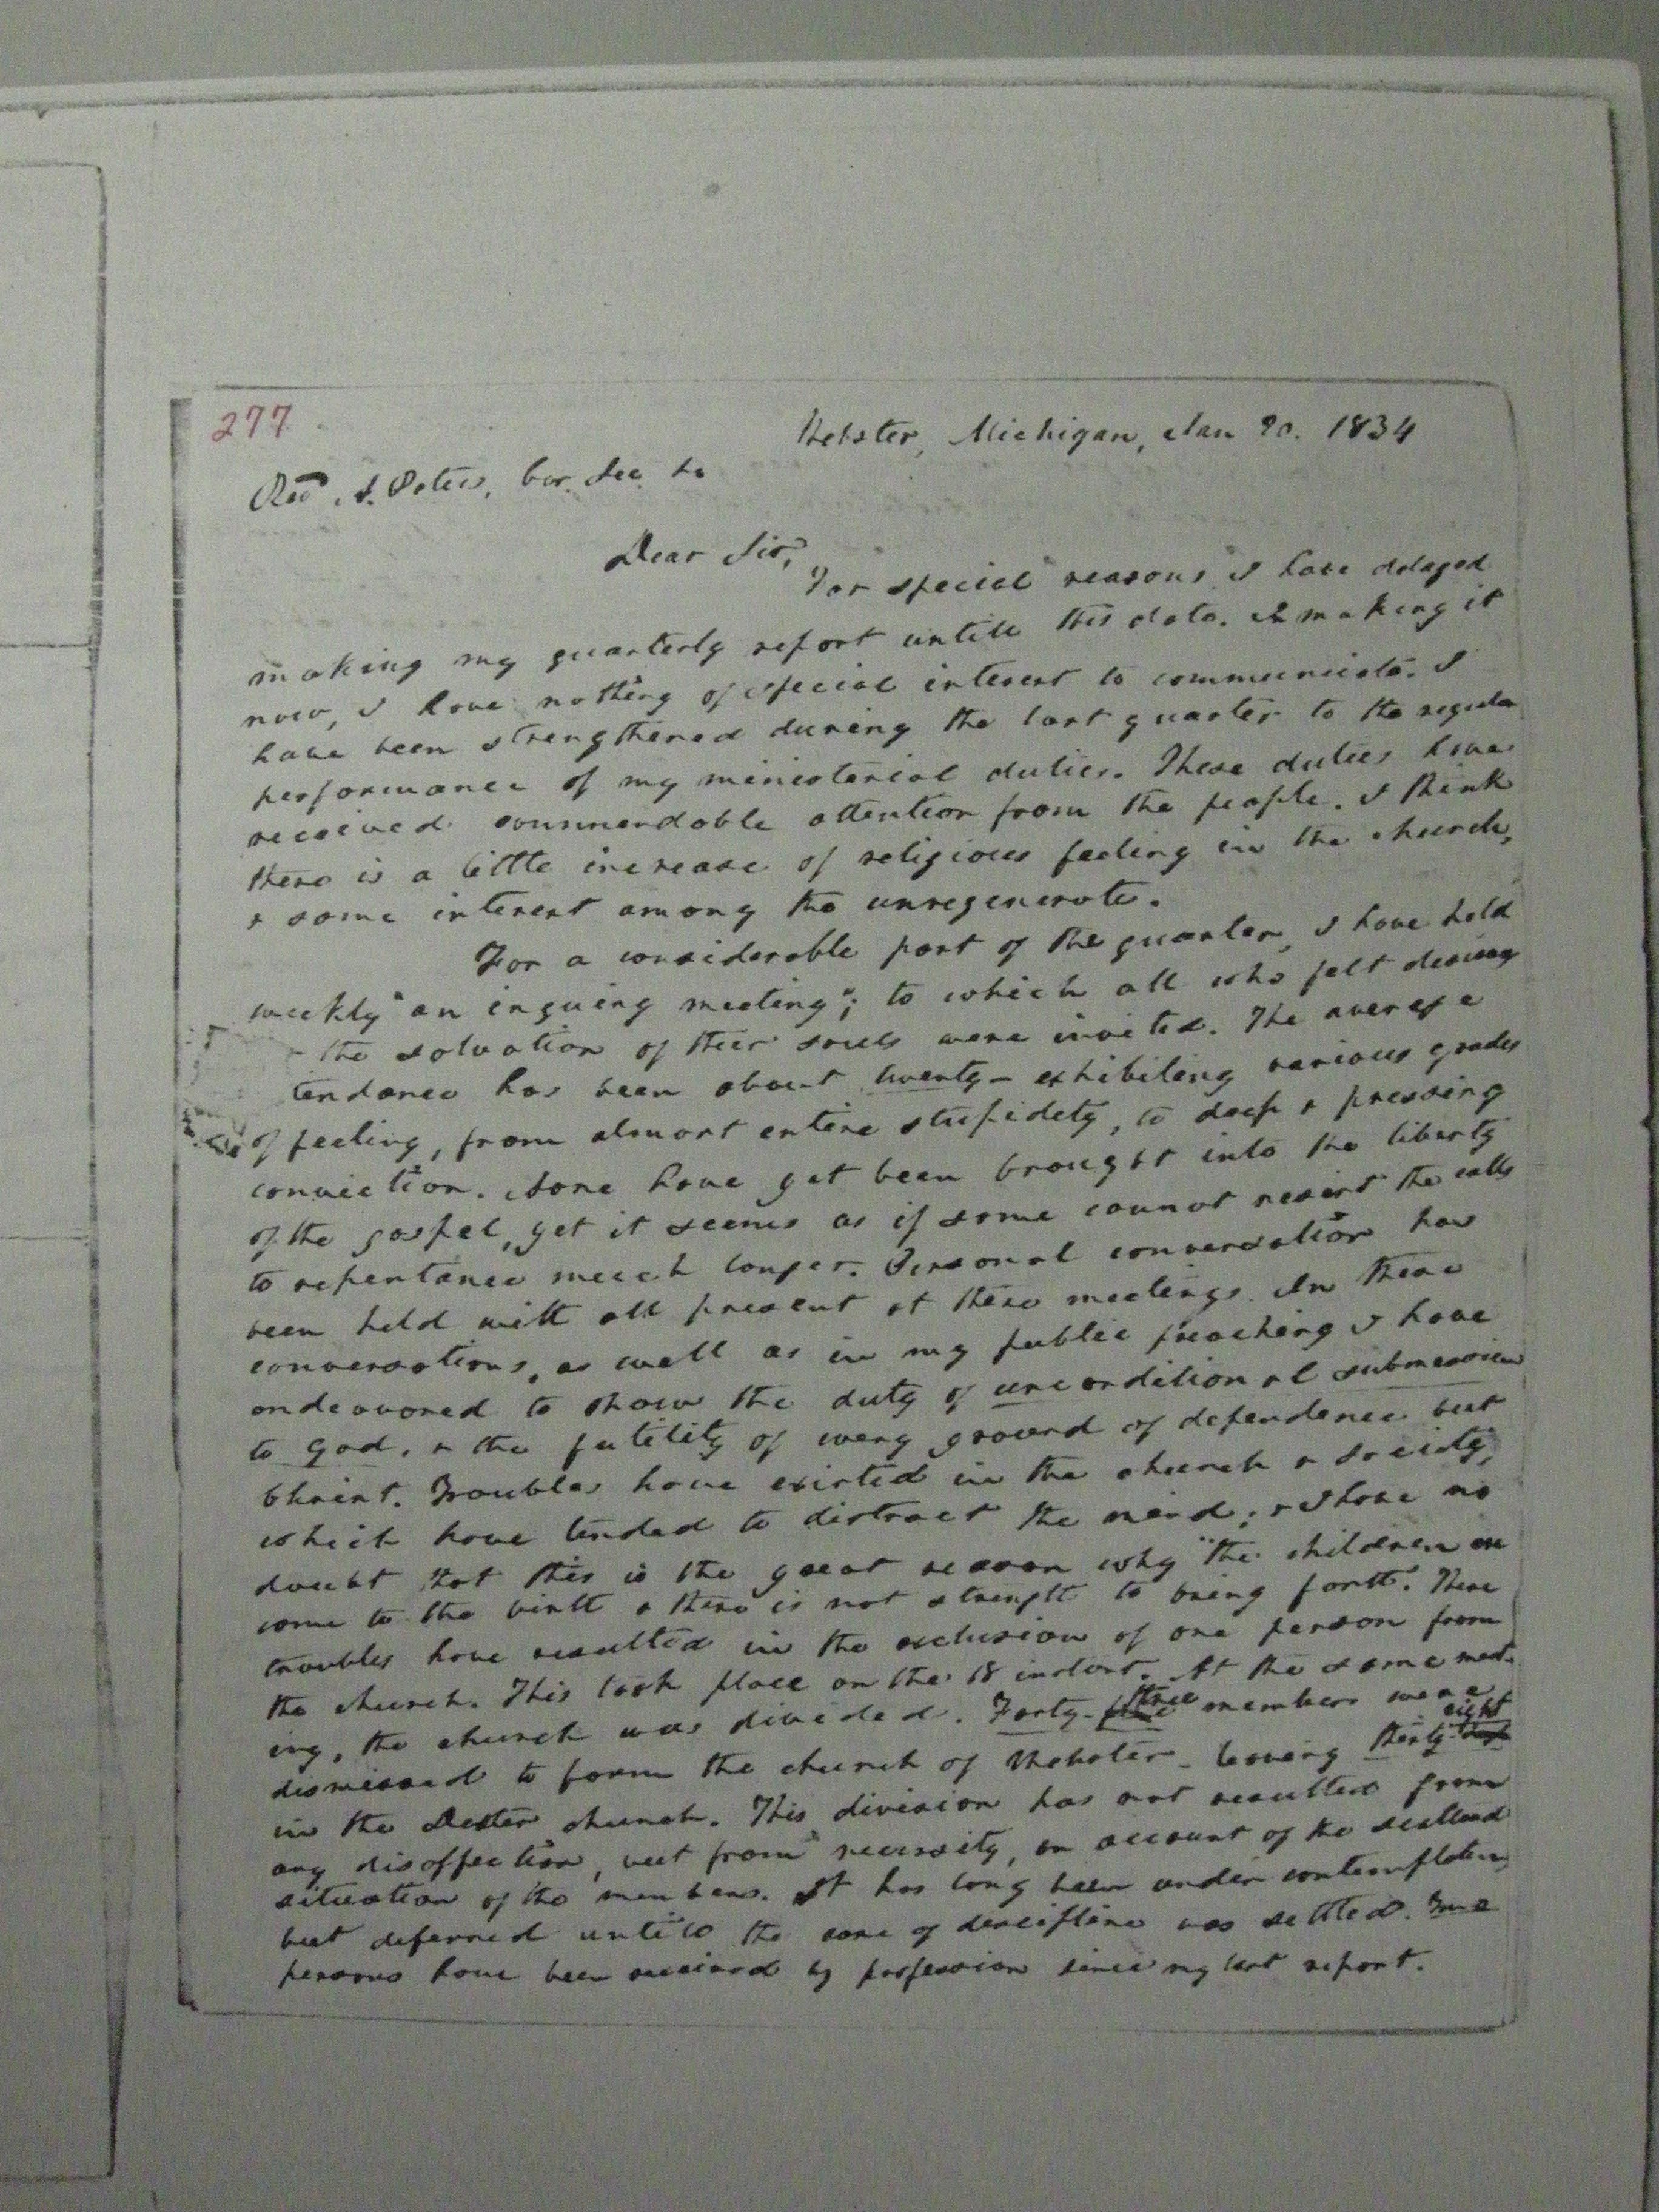 277
Webster, Michigan, Jan 20. 1834
Revd. A. Peters, Cor. Sec. &c
Dear Sir,
For special reasons I have delayed
making my quarterly report untill this date. In making it
now, I have nothing of special interest to communicate. I
have been strengthened during the last quarter to the regular
performance of my ministerial duties. These duties have
received commendable attention from the people. I think
there is a little increase of religious feeling in the church,
& some interest among the unregenerate.
For a considerable part of the quarter, I have held
weekly "an inquiring meeting"; to which all who felt desirous
the salvation of their souls were invited. The average
tendance has been about twenty - exhibiting various grades
of feeling, from almost entire stupidity, to deep & pressing
conviction. None have yet been brought into the liberty
of the gospel, yet it seems as if some cannot resist the calls
to repentance much longer. Personal conversation has
been held with all present at these meetings. In these
conversations, as well as in my public preaching I have
endeavored to show the duty of unconditional submission
to God, & the futility of every ground of dependence but
Christ. Troubles have existed in the church & society,
which have tended to distract the mind; & I have no
doubt that this is the great reason why "the children are
come to the birth & there is not strength to bring forth. These
troubles have resulted in the exclusion of one person from
the church. This took place on the 18 instant. At the same meet-
ing, the church was divided. Forty-three members were
dismissed to form the church of Webster - leaving thirty-eight
in the Dexter church. This division has not resulted from
any disaffection, but from necessity, on account of the scattered
situation of the members. It has long been under contemplation,
but deferred untill the case of discipline was settled.
persons have been received by profession since my last report.